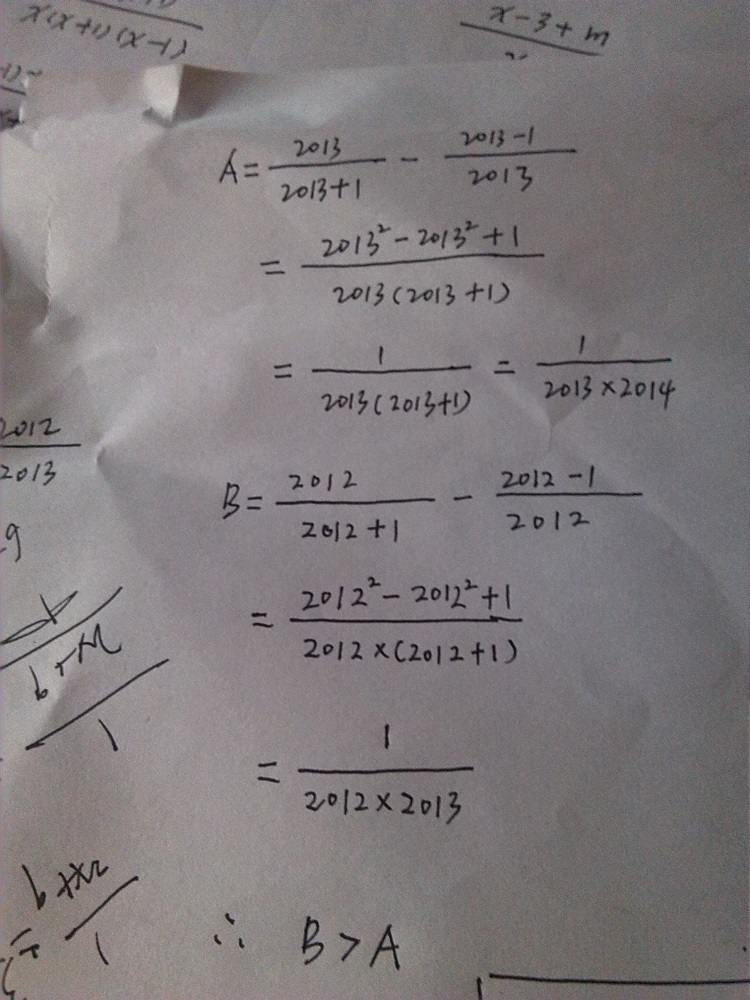 x(x+1)(x-1)
x-3+m
A = 2013/(2013+1) - (2013-1)/2013
= (2013²-2013²+1)/(2013(2013+1))
= 1/(2013(2013+1)) = 1/(2013×2014)
2012/2013
B = 2012/(2012+1) - (2012-1)/2012
= (2012²-2012²+1)/(2012×(2012+1))
= 1/(2012×2013)
∴ B>A